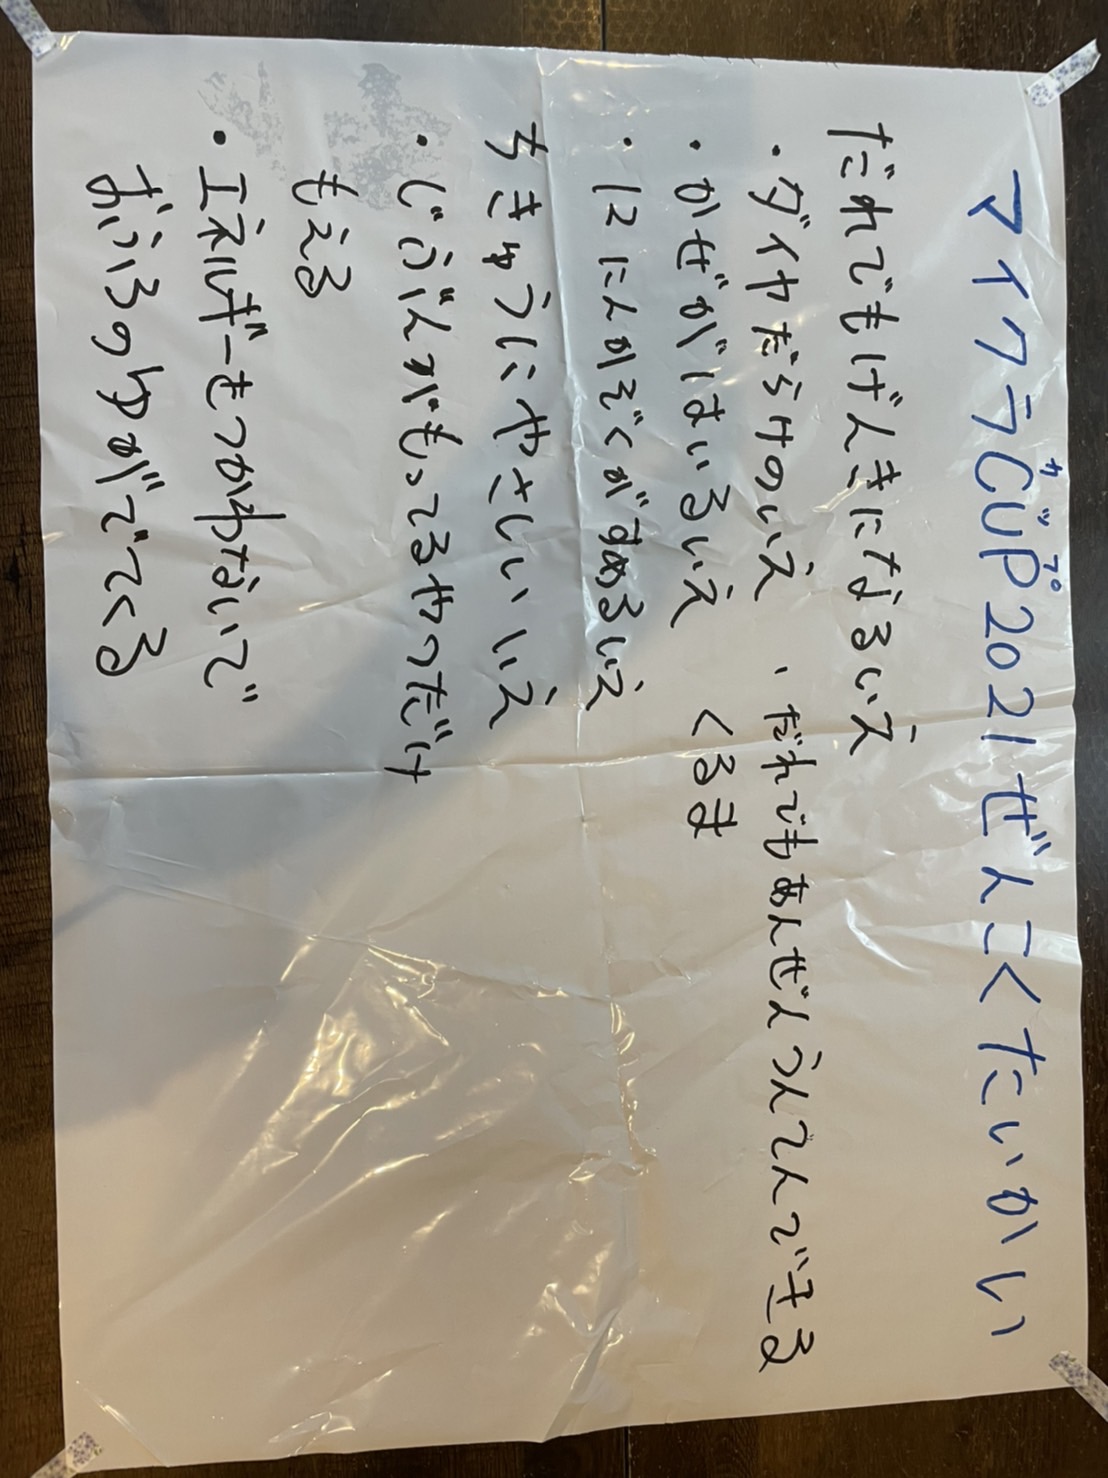 カップ
マイクラCUP2021ぜんこくたいかい
だれでもげんきになるいえ
・ダイヤだらけのいえ
・かぜがはいるいえ
・12にんかぞくがすめるいえ
・だれでもあんぜんうんてんできる
くるま
ちきゅうにやさしいいえ
・じぶんがもってるやつだけ
もえる
・エネルギーをつかわないで
おふろのゆがでてくる